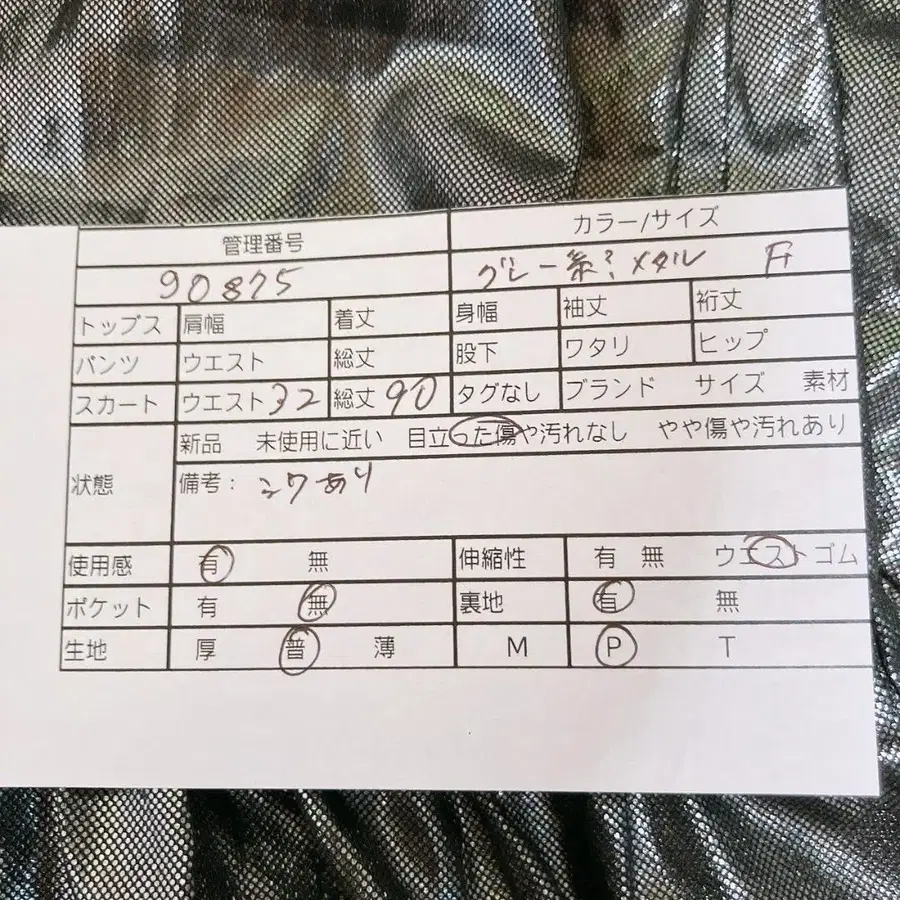 管理番号 カラー/サイズ
90875 グレー系? メタル F
トップス 肩幅 着丈 身幅 袖丈 裄丈
パンツ ウエスト 総丈 股下 ワタリ ヒップ
スカート ウエスト 32 総丈 90 タグなし ブランド サイズ 素材
状態 新品 未使用に近い 目立った傷や汚れなし やや傷や汚れあり
備考: シワあり
使用感 有 無 伸縮性 有 無 ウエストゴム
ポケット 有 無 裏地 有 無
生地 厚 普 薄 M P T